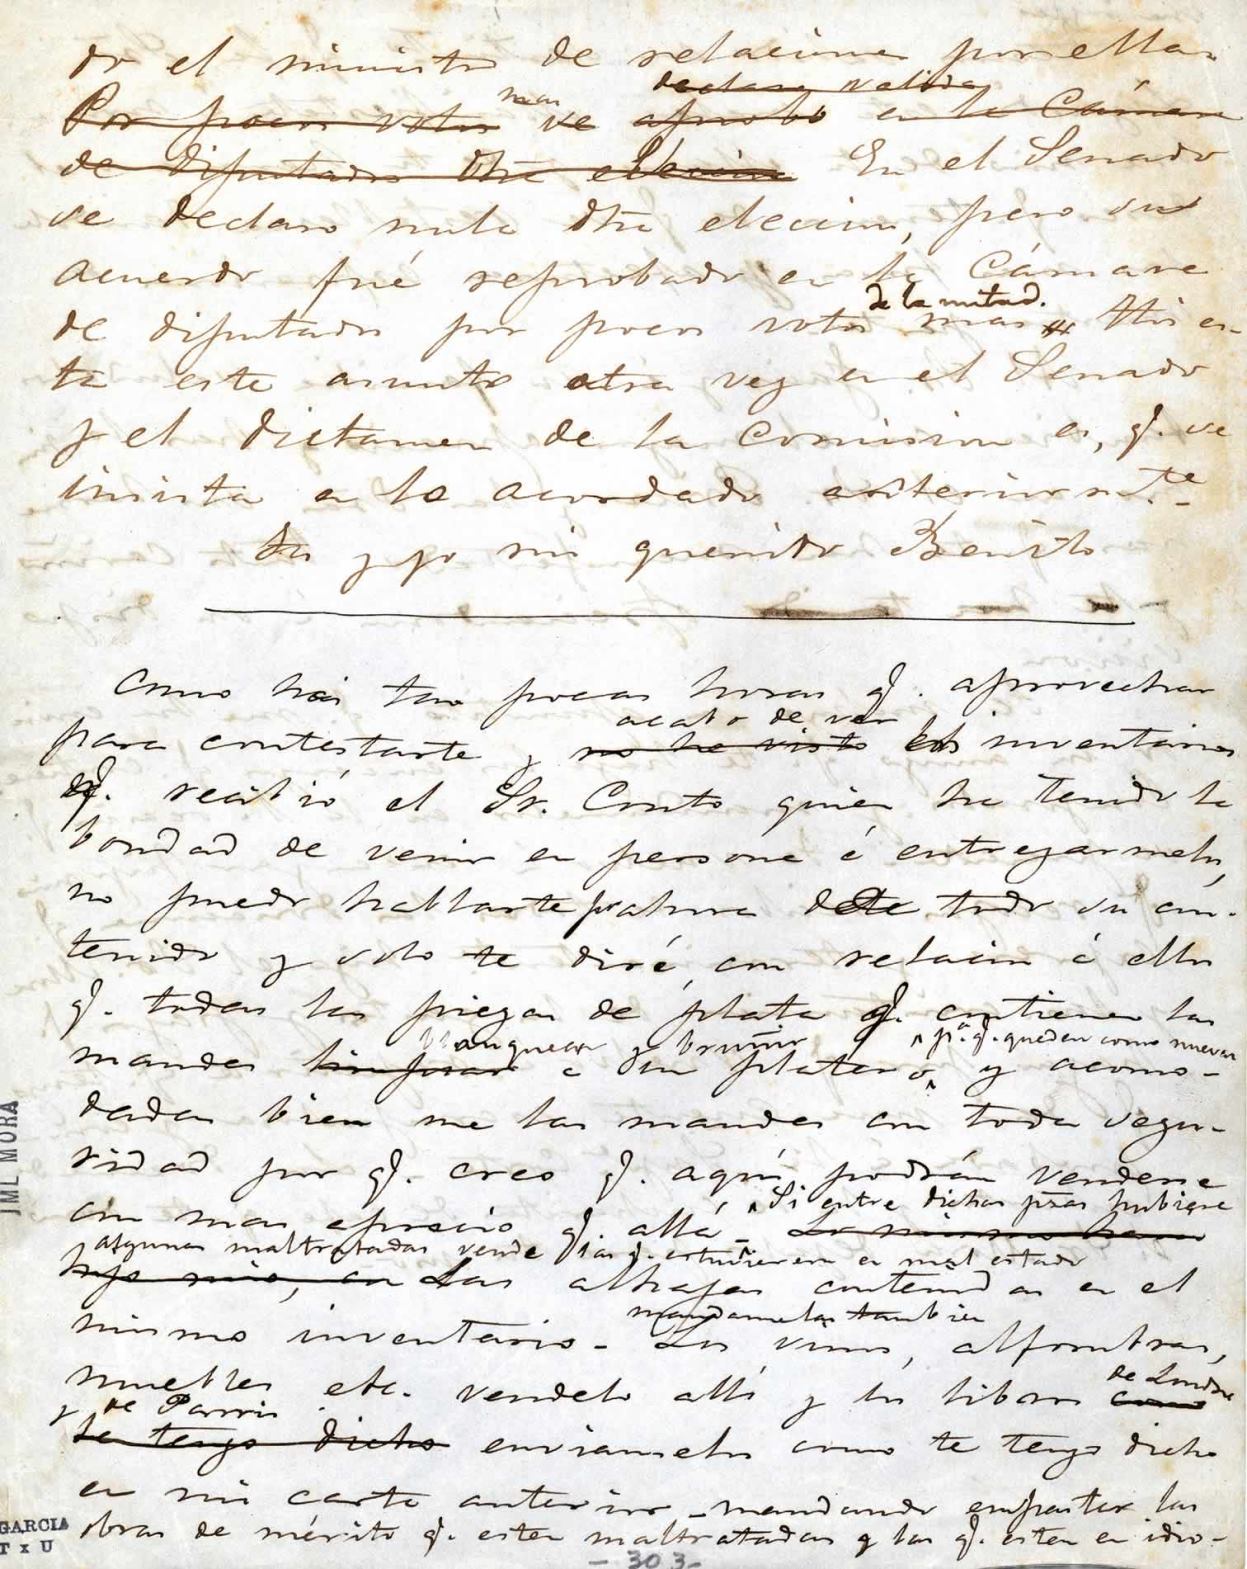 do el ministro de relaciones por ellas.
declara valida
Por pocos votos mas se aprobó en la Cámara
de diputados dha elecion En el Senado
se declaro nula dha elecion, pero su
acuerdo fué reprobado en la Cámara
de la mitad.
de diputados por pocos votos mas Hoi es-
ta este asunto otra vez en el Senado
y el dictamen de la Comision es, q. se
insista en lo acordado anteriormte.
tu y yo mi querido Benito
Como hai tan pocas horas q. aprovechar
acabo de ver
para contestarte y no he visto los inventarios
q. recibió el Sr. Couto quien ha tenido la
bondad de venir en persona á entregarmelos,
no puedo hablarte pr ahora de todo su con-
tenido y solo te diré, con relacion á ellos
q. todas las piezas de plata q. contienen las
blanquear y bruñir pa. q. quedan como nuevas
mandes limpiar a un platero y acomo-
dadas bien me las mandes con toda segu-
ridad por q. creo q. aquí podrán venderse
Si entre dichas pzas hubiere
con mas aprecio q. allá - Lo mismo haras
algunas maltratadas vende q. estuvieren en mal estado
hijo mio, con Las alhajas contenidas en el
mandamelas tambien
mismo inventario - Los vinos, alfombras,
muebles etc. vendelo allí y los libros como
de Londres
y de Parris
te tengo dicho enviamelos como te tengo dicho
en mi carta anterior - mandando empastar las
obras de mérito q. esten maltratadas y las q. esten en idio-
- 303 -
JML MORA
GARCIA
TxU